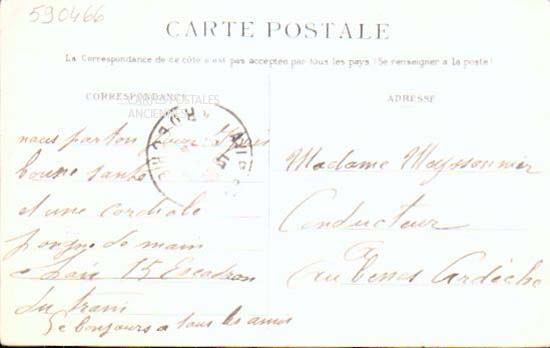 590466
CARTE POSTALE
La Correspondance de ce côté n'est pas acceptée par tous les pays (Se renseigner à la poste)
CORRESPONDANCE
ADRESSE
CARTES POSTALES
ANCIENNES
nous parton pour
bonne santé
et une cordiale
poigne de main
15 Escadron
du train
le bonjours a tous les amis
Madame Meyssonnier
Conducteur
a
Aubenas Ardèche